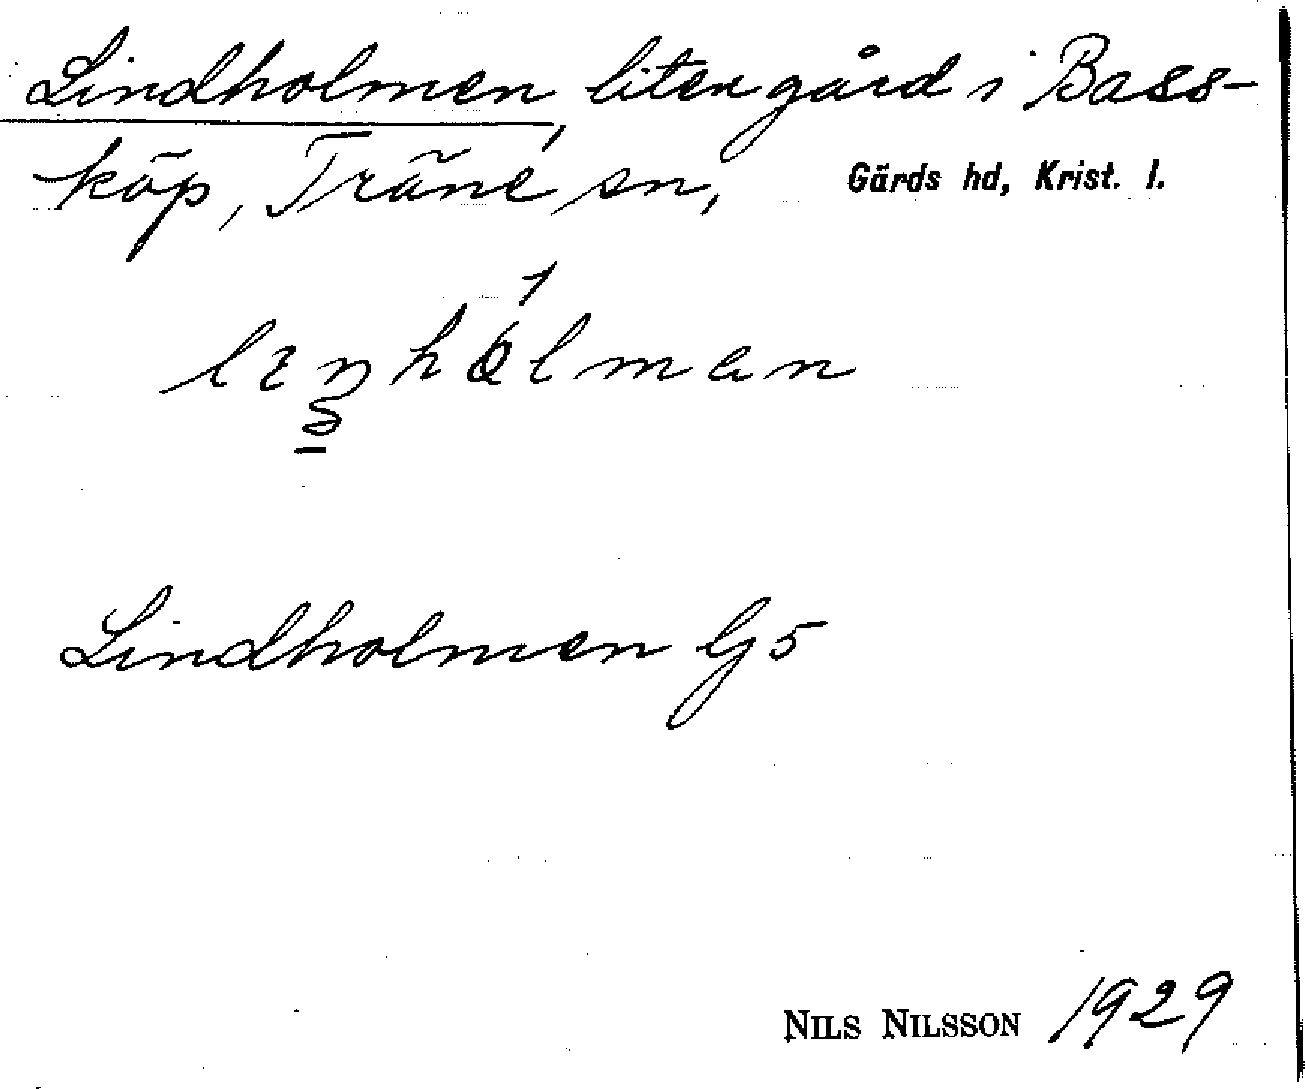 Lindholmen, liten gård i Bass-
köp, Träne sn, Gärds hd, Krist. l.
Lindholmen G5
NILS NILSSON 1929